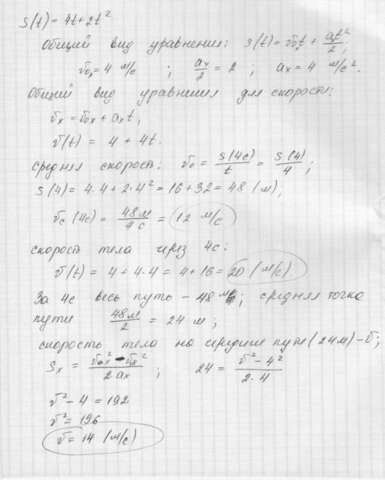 S(t) = 4t + 2t²
Общий вид уравнения: S(t) = v₀ₓt + at²/2;
v₀ₓ = 4 м/с ; aₓ/2 = 2 ; aₓ = 4 м/с².
Общий вид уравнения для скорости:
vₓ = v₀ₓ + aₓt,
v(t) = 4 + 4t.
Средняя скорость: v_c = S(4c)/t = S(4)/4;
S(4) = 4·4 + 2·4² = 16 + 32 = 48 (м),
v_c (4c) = 48м/4c = 12 м/с
скорость тела через 4с:
v(t) = 4 + 4·4 = 4 + 16 = 20 (м/с)
За 4с весь путь – 48 м; средняя точка
пути 48м/2 = 24 м;
скорость тела на середине пути (24м) – v;
Sₓ = v₀ₓ² - vₓ²/2aₓ ; 24 = v² – 4²/2·4
v² – 4 = 192
v² = 196
v = 14 (м/с)